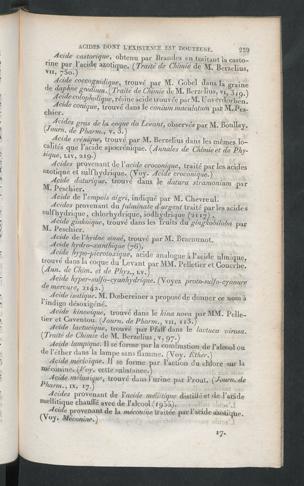 ACIDES DONT L'EXISTENCE EST DOUTEUSE. 259
Acide castorique, obtenu par Brandes en traitant la casto-
rine par l'acide azotique. (Traité de Chimie de M. Berzelius,
VII, 750.)
Acide coccognidique, trouvé par M. Gobel dans la graine
de daphne gnidium. (Traité de Chimie de M. Berzelius,
résine acide trouvée par M. Unverdorben.
Acide conique, trouvé dans le conium maculatum par M. Pes-
chier.
Acides gras de la coque du Levant, observés par M. Boullay.
(Journ. de Pharm., v, 3.)
Acide crénique, trouvé par M. Berzelius dans les mêmes lo-
calités que l'acide apocrénique. (Annales de Chimie et de Phy-
sique, LIV, 219.)
Acides provenant de l'acide croconique, traité par les acides
azotique et sulfhydrique. (Voy. Acide croconique.)
Acide daturique, trouvé dans le datura stramonium par
M. Peschier.
Acide de l'empois aigri, indiqué par M. Chevreul.
Acides provenant du fulminate d'argent traité par les acides
sulfhydrique, chlorhydrique, iodhydrique (2117).
Acide ginkoique, trouvé dans les fruits du gingkobiloba par
M. Peschier.
Acide de l'hydne sinué, trouvé par M. Braconnot.
Acide hydro-xanthique (76).
Acide hypo-picrotoxique, acide analogue à l'acide ulmique,
trouvé dans la coque du Levant par MM. Pelletier et Couerbe.
(Ann. de Chim. et de Phys., LV.)
Acide hyper-sulfo-cyanhydrique. (Voyez proto-sulfo-cyanure
de mercure, 2142.)
Acide isatique. M. Dœbereiner a proposé de donner ce nom à
l'indigo désoxigéné.
Acide kinovique, trouvé dans le kina nova par MM. Pelle-
tier et Caventou. (Journ. de Pharm., VII, 113.)
Acide lactucique, trouvé par Pfaff dans le lactuca virosa.
(Traité de Chimie de M. Berzelius, v, 97.)
Acide lampique. Il se forme par la combustion de l'alcool ou
de l'éther dans la lampe sans flamme. (Voy. Éther.)
Acide méchloïque. Il se forme par l'action du chlore sur la
méconine. (Voy. cette substance.)
Acide mélanique, trouvé dans l'urine par Prout. (Journ. de
Pharm., IX, 17.)
Acides provenant de l'acide mellitique distillé et de l'acide
mellitique chauffé avec de l'alcool (1955).
Acide provenant de la méconine traitée par l'acide azotique.
(Voy. Méconine.)
17.